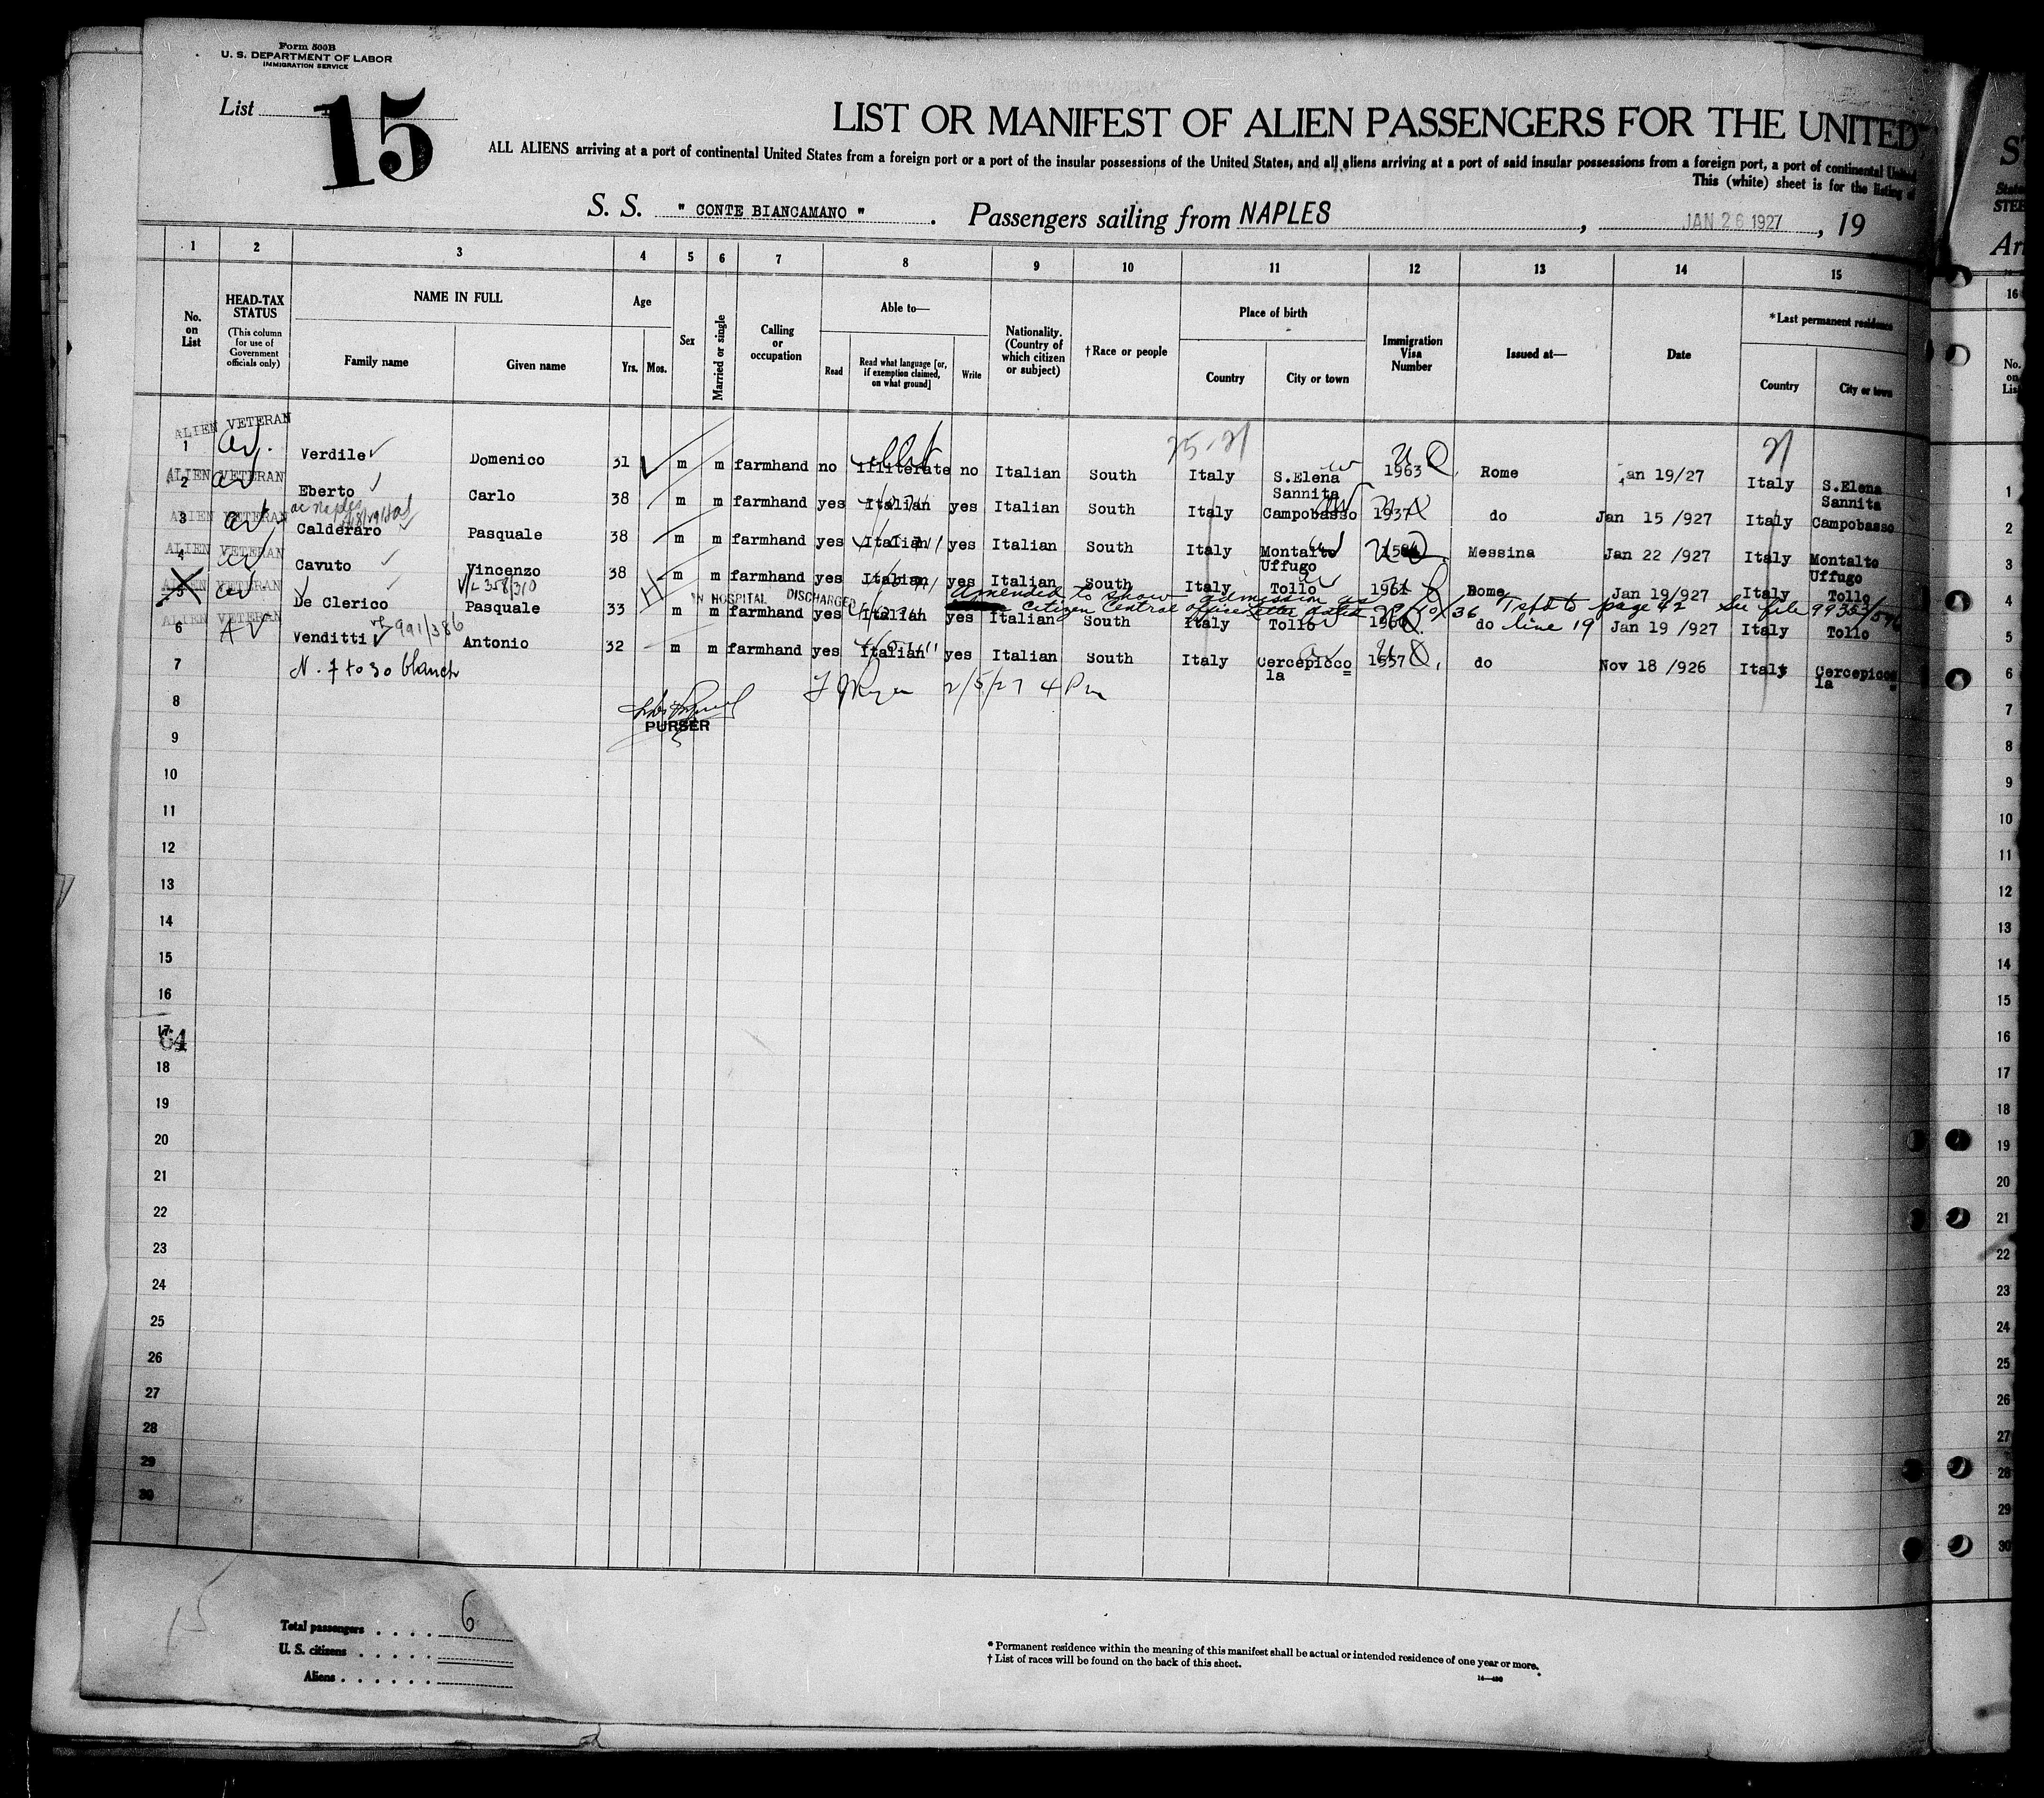 Form 500B
U. S. DEPARTMENT OF LABOR
IMMIGRATION SERVICE
List
15
LIST OR MANIFEST OF ALIEN PASSENGERS FOR THE UNITED
ALL ALIENS arriving at a port of continental United States from a foreign port or a port of the insular possessions of the United States, and all aliens arriving at a port of said insular possessions from a foreign port, a port of continental United
This (white) sheet is for the listing of
S. S. " CONTE BIANCAMANO " . Passengers sailing from NAPLES , JAN 26 1927 , 19
1 2 3 4 5 6 7 8 9 10 11 12 13 14 15 16
No. on List
HEAD-TAX STATUS
(This column for use of Government officials only)
NAME IN FULL
Family name
Given name
Age
Yrs. Mos.
Sex
Married or single
Calling or occupation
Able to—
Read
Read what language [or, if exemption claimed, on what ground]
Write
Nationality. (Country of which citizen or subject)
†Race or people
Place of birth
Country
City or town
Immigration Visa Number
Issued at—
Date
*Last permanent residence
Country
City or town
ALIEN VETERAN
1 av. Verdile Domenico 31 m m farmhand no illiterate no Italian South Italy S.Elena Sannita 1963 Rome an 19/27 Italy S.Elena Sannita
ALIEN VETERAN
2 av Eberto Carlo 38 m m farmhand yes Italian yes Italian South Italy Campobasso 1937 do Jan 15 /927 Italy Campobasso
ALIEN VETERAN
3 av Calderaro Pasquale 38 m m farmhand yes Italian yes Italian South Italy Montalto Uffugo Messina Jan 22 /927 Italy Montalto Uffugo
ALIEN VETERAN
4 av Cavuto Vincenzo 38 m m farmhand yes Italian yes Italian South Italy Tollo 1961 Rome Jan 19/927 Italy Tollo
V/L 358/310
IN HOSPITAL DISCHARGED
Amended to show admission as
citizen Central office letter dated /10/36 Tsfd to page 42 See file 99353/576
line 19
ALIEN VETERAN
5 av De Clerico Pasquale 33 m m farmhand yes Italian yes Italian South Italy Tollo 1960 do Jan 19 /927 Italy Tollo
ALIEN VETERAN
6 AV Venditti 991/386 Antonio 32 m m farmhand yes Italian yes Italian South Italy Cercepicco la 1557 do Nov 18 /926 Italy Cercepicco la
7 N. 7 to 30 blanch
2/5/27 4 Pm
8
PURSER
9
10
11
12
13
14
15
16
17
64
18
19
20
21
22
23
24
25
26
27
28
29
30
15
Total passengers . . . . 6
U. S. citizens . . . . .
Aliens . . . . . .
* Permanent residence within the meaning of this manifest shall be actual or intended residence of one year or more.
† List of races will be found on the back of this sheet.